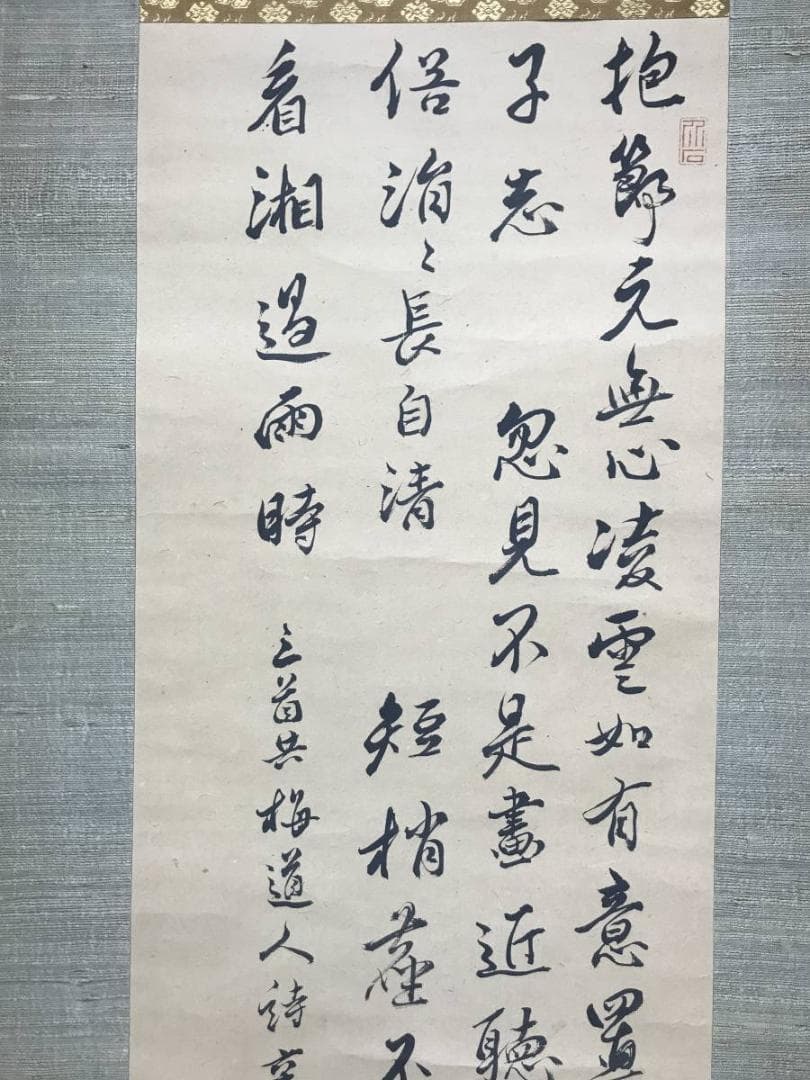 抱節元無心凌雲如有意置
子志　忽見不是畫近聽
俗涓〻長自清　短梢蘿不
看湘過雨時　三首共梅道人詩